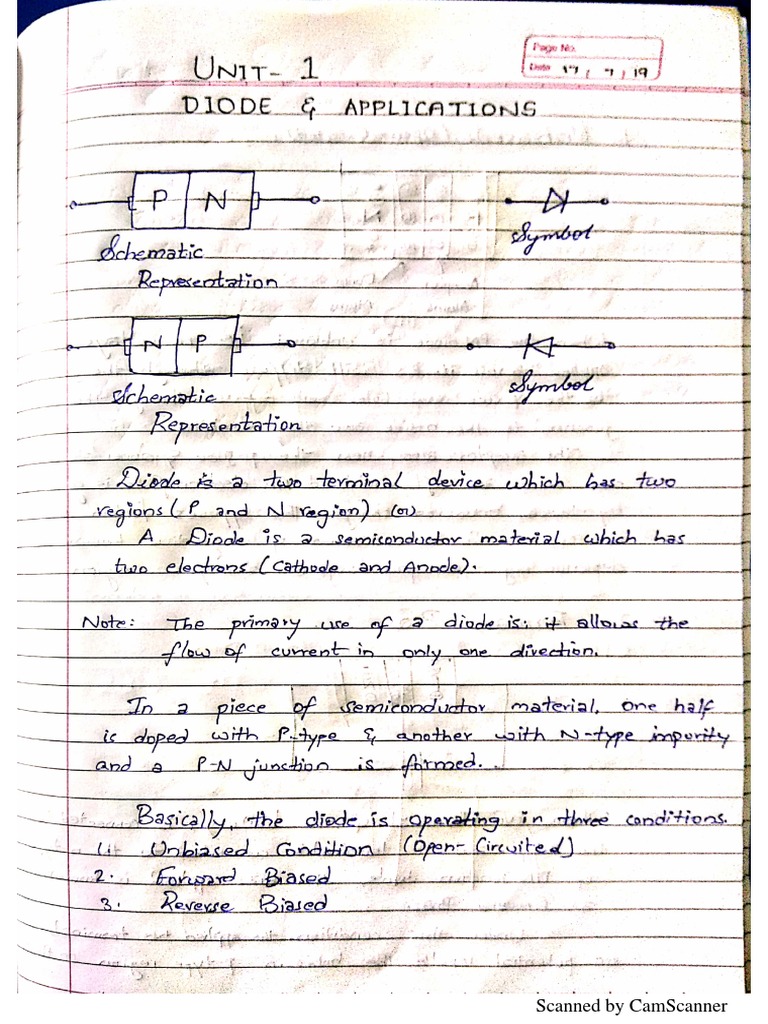 Page No.
Date 17/7/19
UNIT-1
DIODE & APPLICATIONS
P N
Schematic
Representation
Symbol
N P
Schematic
Representation
Symbol
Diode is a two terminal device which has two
regions (P and N region) (or)
A Diode is a semiconductor material which has
two electrons (Cathode and Anode).
Note: The primary use of a diode is: it allows the
flow of current in only one direction.
In a piece of semiconductor material, one half
is doped with P-type & another with N-type impurity
and a P-N junction is formed.
Basically, the diode is operating in three conditions.
1. Unbiased Condition (Open-Circuited)
2. Forward Biased
3. Reverse Biased
Scanned by CamScanner